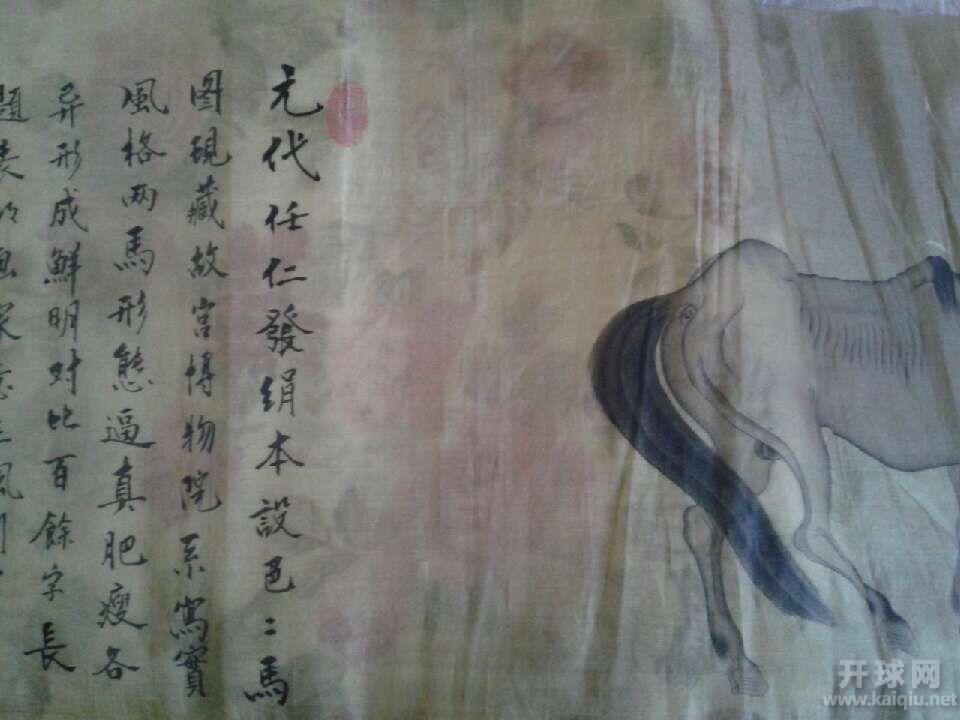 元代任仁發絹本設色二馬
图現藏故宮博物院系寫實
風格两馬形態逼真肥瘦各
异形成鮮明对比百餘字長
題表
开球网
www.kaiqiu.net